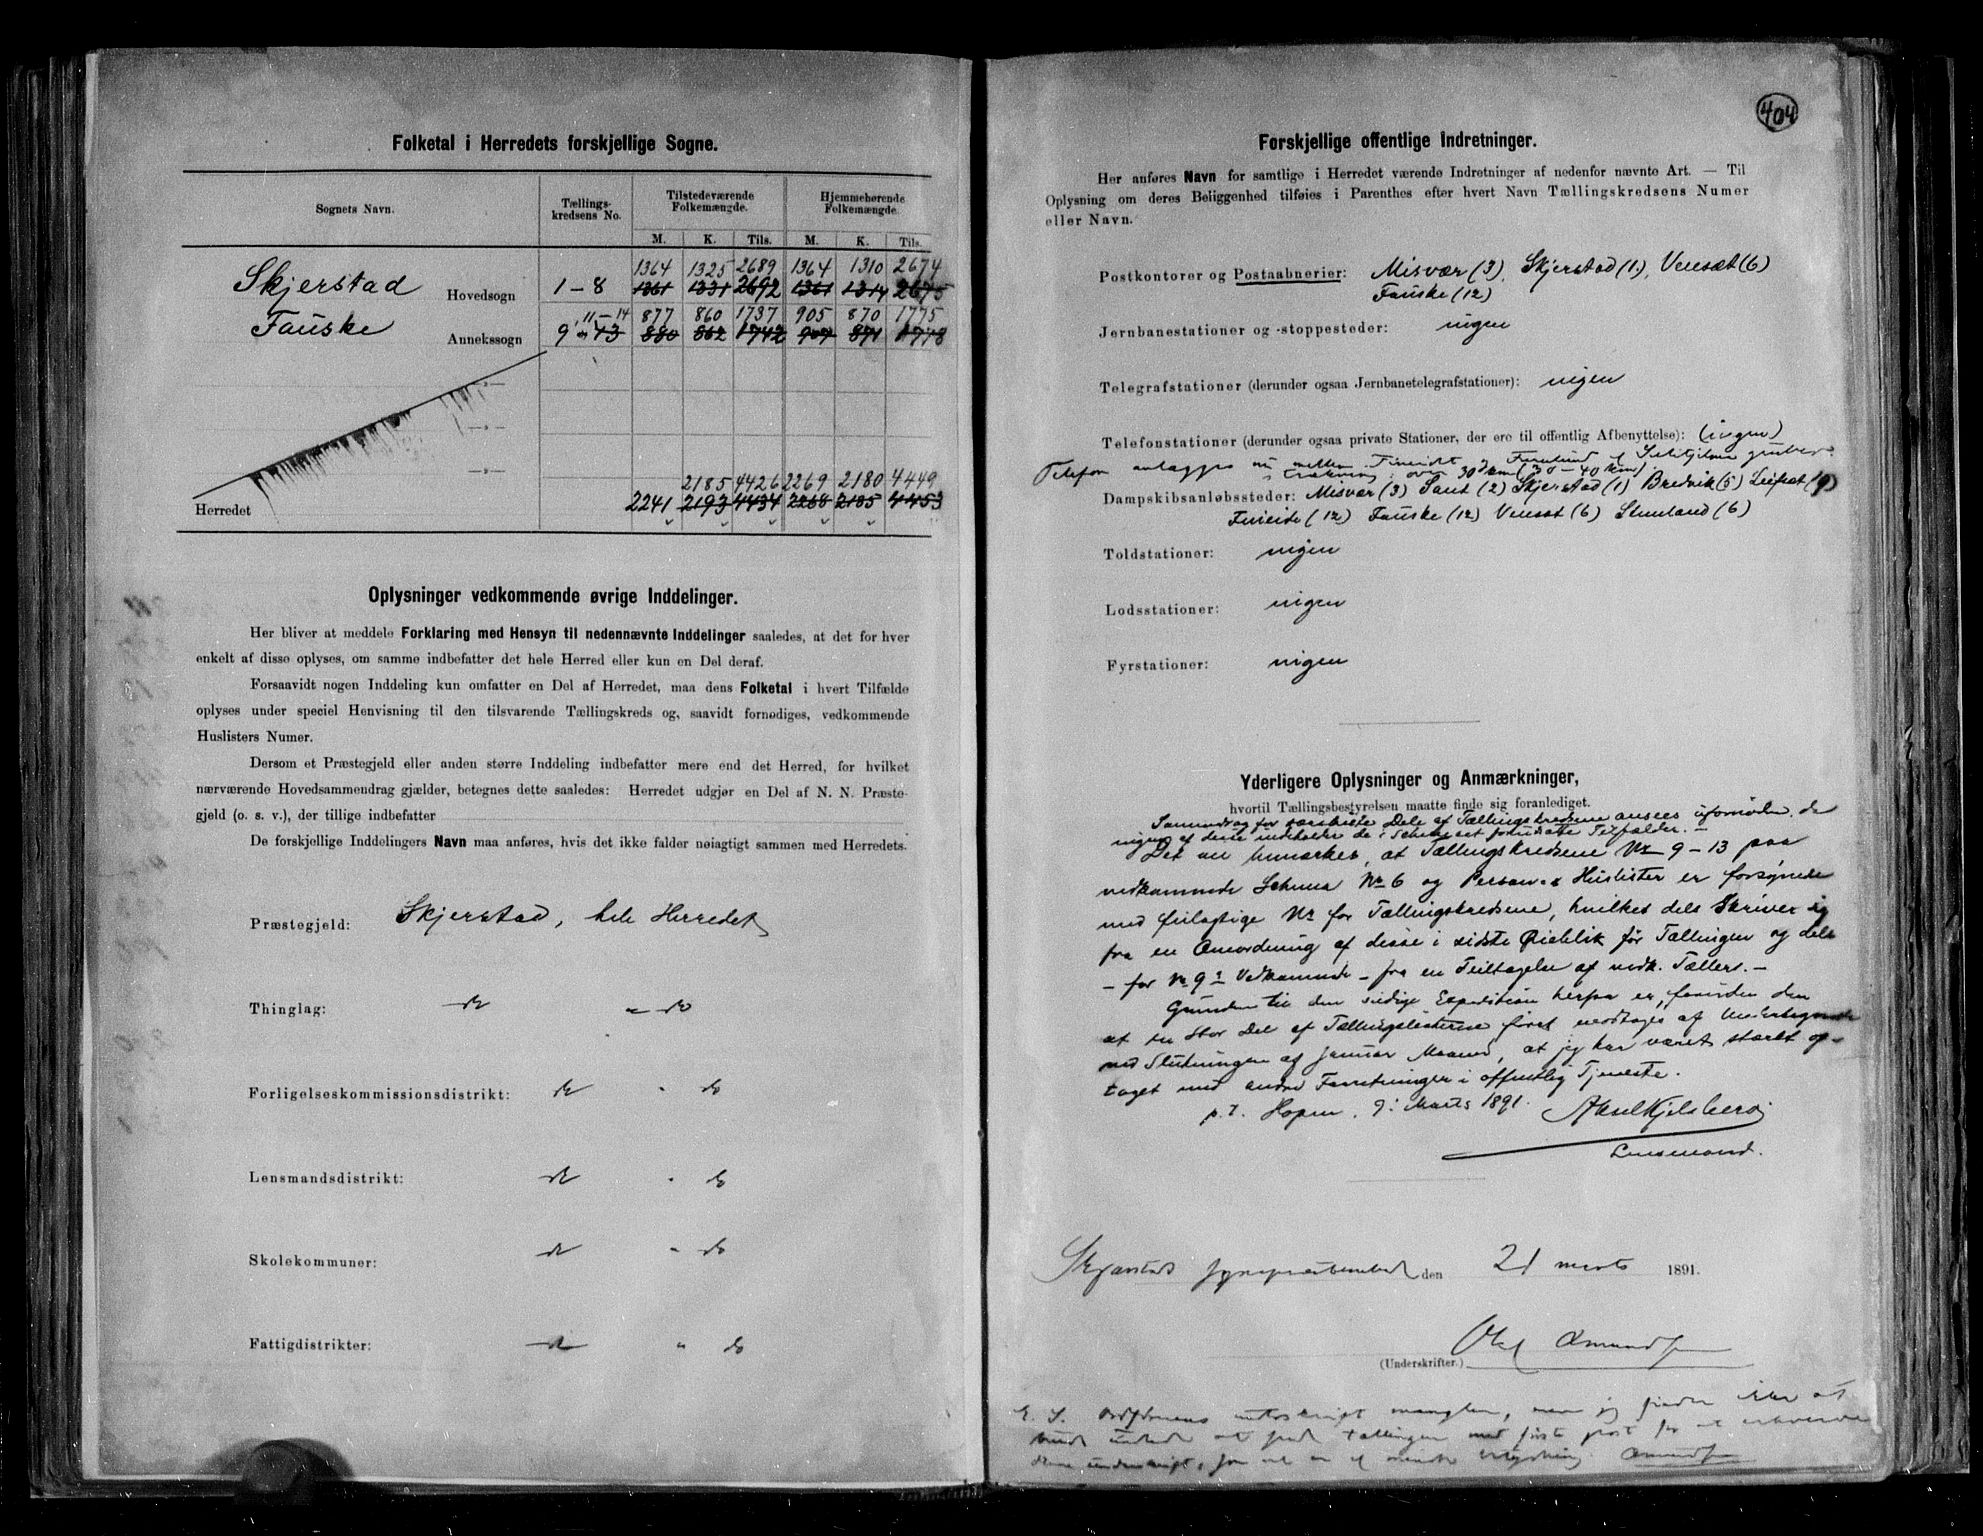 Folketal i Herredets forskjellige Sogne.
Sognets Navn.
Tællings-
kredsens No.
Tilstedeværende
Folkemængde.
Hjemmehørende
Folkemængde.
M. K. Tils. M. K. Tils.
1364 1325 2689 1364 1310 2674
Skjerstad Hovedsogn 1-8 1361 1331 2692 1361 1314 2675
11-14 877 860 1737 905 870 1775
Fauske Annekssogn 9 - 13 880 862 1742 907 871 1778
—»—
—»—
—»—
2185 4426 2269 2180 4449
Herredet 2241 2193 4434 2268 2185 4453
Oplysninger vedkommende øvrige Inddelinger.
Her bliver at meddele Forklaring med Hensyn til nedennævnte Inddelinger saaledes, at det for hver
enkelt af disse oplyses, om samme indbefatter det hele Herred eller kun en Del deraf.
Forsaavidt nogen Inddeling kun omfatter en Del af Herredet, maa dens Folketal i hvert Tilfælde
oplyses under speciel Henvisning til den tilsvarende Tællingskreds og, saavidt fornødiges, vedkommende
Huslisters Numer.
Dersom et Præstegjeld eller anden større Inddeling indbefatter mere end det Herred, for hvilket
nærværende Hovedsammendrag gjælder, betegnes dette saaledes: Herredet udgjør en Del af N. N. Præste-
gjeld (o. s. v.), der tillige indbefatter
De forskjellige Inddelingers Navn maa anføres, hvis det ikke falder nøiagtigt sammen med Herredets.
Præstegjeld: Skjerstad, hele Herredet
Thinglag: do " do
Forligelseskommissionsdistrikt: do " do
Lensmandsdistrikt: do " do
Skolekommuner: do " do
Fattigdistrikter: do " do
404
Forskjellige offentlige Indretninger.
Her anføres Navn for samtlige i Herredet værende Indretninger af nedenfor nævnte Art. — Til
Oplysning om deres Beliggenhed tilføies i Parenthes efter hvert Navn Tællingskredsens Numer
eller Navn.
Postkontorer og Postaabnerier: Misvær (3), Skjerstad (1), Vensæt (6)
Fauske (12)
Jernbanestationer og -stoppesteder: ingen
Telegrafstationer (derunder ogsaa Jernbanetelegrafstationer): ingen
Telefonstationer (derunder ogsaa private Stationer, der ere til offentlig Afbenyttelse): (ingen)
Telefon anlægges nu mellem Fineidet og Furulund
over 30 km (30-40 km)
Dampskibsanløbssteder: Misvær (3) Sant (2) Skjerstad (1) Bredvik (5) Leifset (9)
Fineide (12) Fauske (12) Vensæt (6) Stenland (6)
Toldstationer: ingen
Lodsstationer: ingen
Fyrstationer: ingen
Yderligere Oplysninger og Anmærkninger,
hvortil Tællingsbestyrelsen maatte finde sig foranlediget.
Sammendrag for særskilte Dele af Tællingskredsene ansees ufornøden, da
ingen af disse indeholder de i Schemaet forudsatte Tilfælder. —
Det bemærkes, at Tællingskredsene No 9-13 paa
vedkommende Schema No 6 og Person- & Huslister er forsynede
med feilagtige No for Tællingskredsene, hvilket dels Skriver sig
fra en Omordning af disse i sidste Øieblik før Tællingen og dels
- for No 9's Vedkommende - fra en Feiltagelse af vedk. Tællers. —
Grunden til den sidige Expedition herfra er, foruden den
at en Stor Del af Tællingslisterne først modtages af Undertegnede
ved Slutningen af Januar Maaned, at jeg har været stærkt op-
taget med andre Forretninger i offentlig Tjeneste.
p. t. Hopen, 9. Marts 1891. Axel Kjelsberg
Lensmand.
Skjerstads den 21 marts 1891.
Ole Amundsen
(Underskrifter.)
E. S. Ordførerens underskrift mangler, men jeg finder ikke at
burde undlade at sende tællingen med første post for at erhverve
denne underskrift,